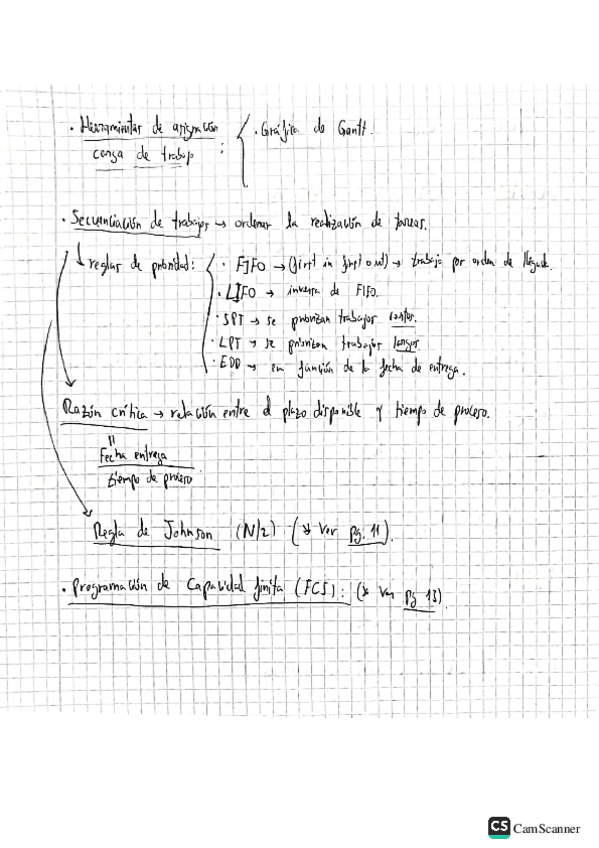 · Herramientas de asignación
carga de trabajo :
· Gráfica de Gantt.
· Secuenciación de trabajos → ordenar la realización de tareas.
↳ reglas de prioridad:
· FIFO → (first in first out) → trabajo por orden de llegada.
· LIFO → inversa de FIFO.
· SPT → se priorizan trabajos cortos.
· LPT → se priorizan trabajos largos
· EDD → en función de la fecha de entrega.
Razón crítica → relación entre el plazo disponible y tiempo de proceso.
=
Fecha entrega
tiempo de proceso
Regla de Johnson (N/2) (* Ver pg. 11).
· Programación de Capacidad finita (FCS): (* Ver pg 13).
CS CamScanner